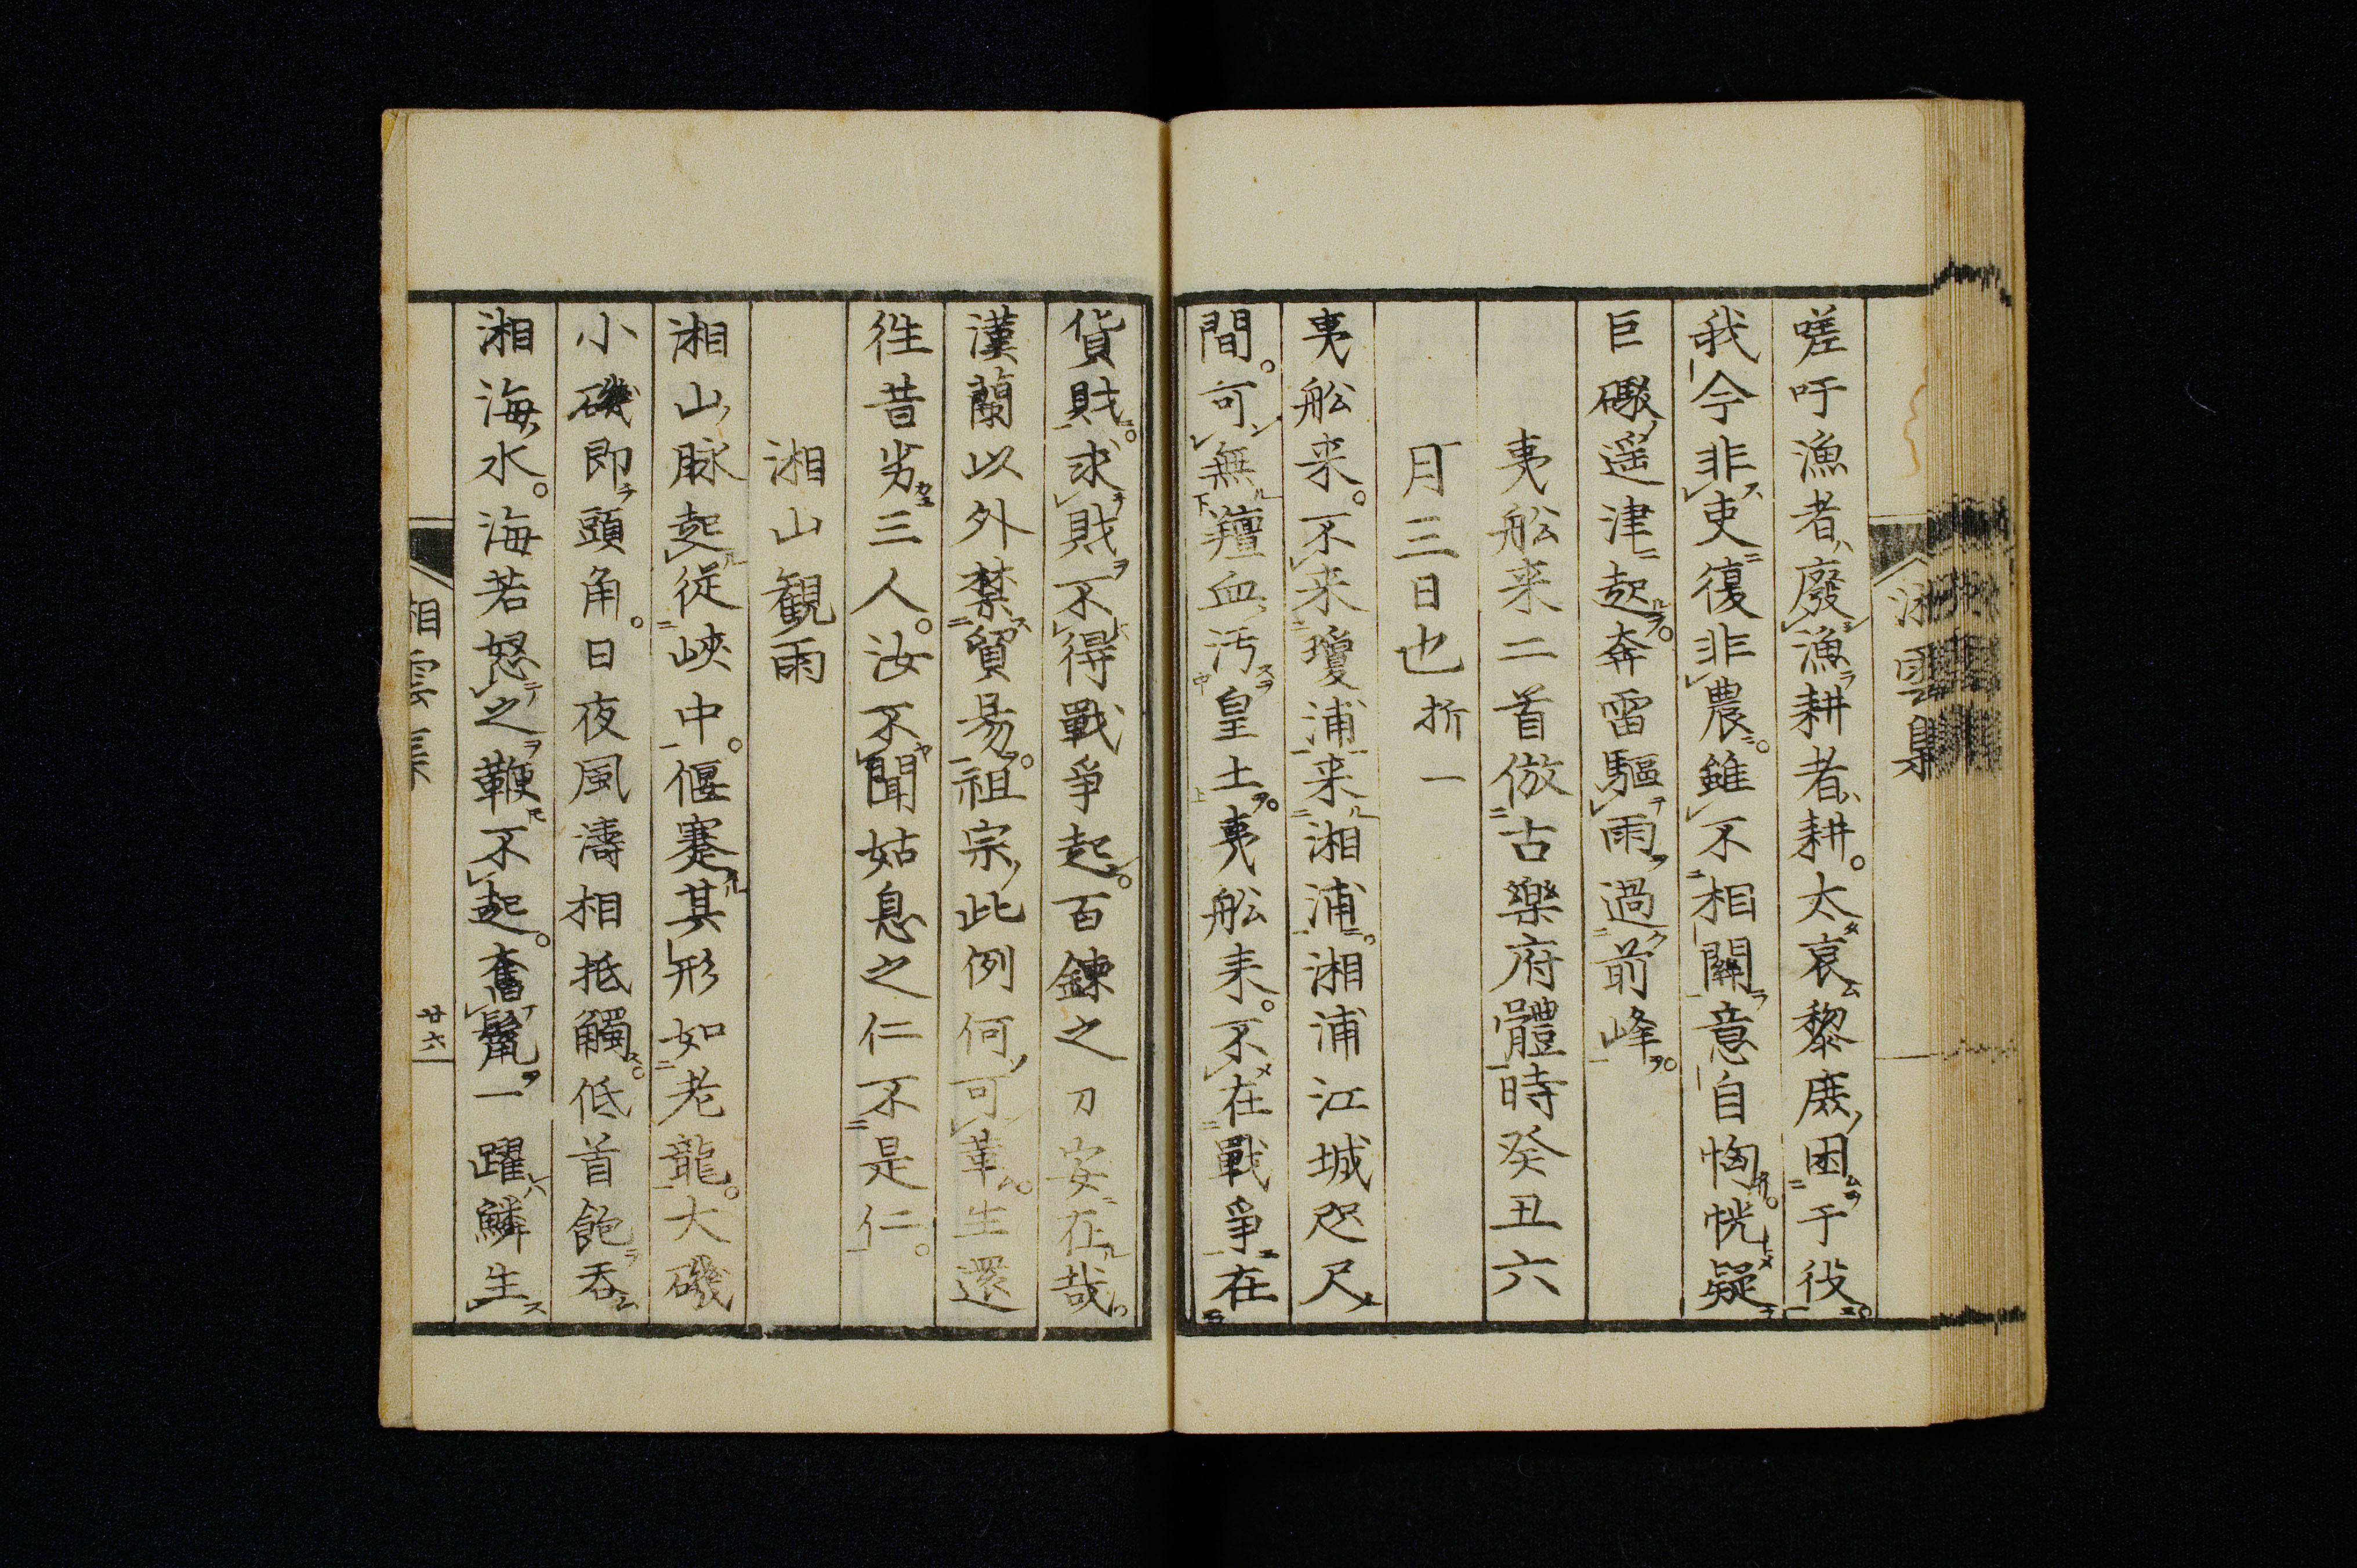 嗟吁漁者廢漁耕者耕。太哀黎庶困于役。
我今非吏復非農。雖不相關意自恟。恍疑
巨礟遥津起。奔雷驅雨過前峰。
夷舩来二首倣古樂府體時癸丑六
月三日也折一
夷舩来。不来瓊浦来湘浦。湘浦江城咫尺
間。可無羶血汚皇土。夷舩来。不在戰爭在
貨賄。求財不得戰爭起。百鍊之刀安在哉。
漢蘭以外禁貿易。祖宗此例何可革。生還
徃昔労三人。汝不聞姑息之仁不是仁。
湘山観雨
湘山脉起從峽中。偃蹇其形如老龍。大磯
小磯即頭角。日夜風濤相抵觸。低首飽呑
湘海水。海若怒之鞭不起。奮鬣一躍鱗生
廿六